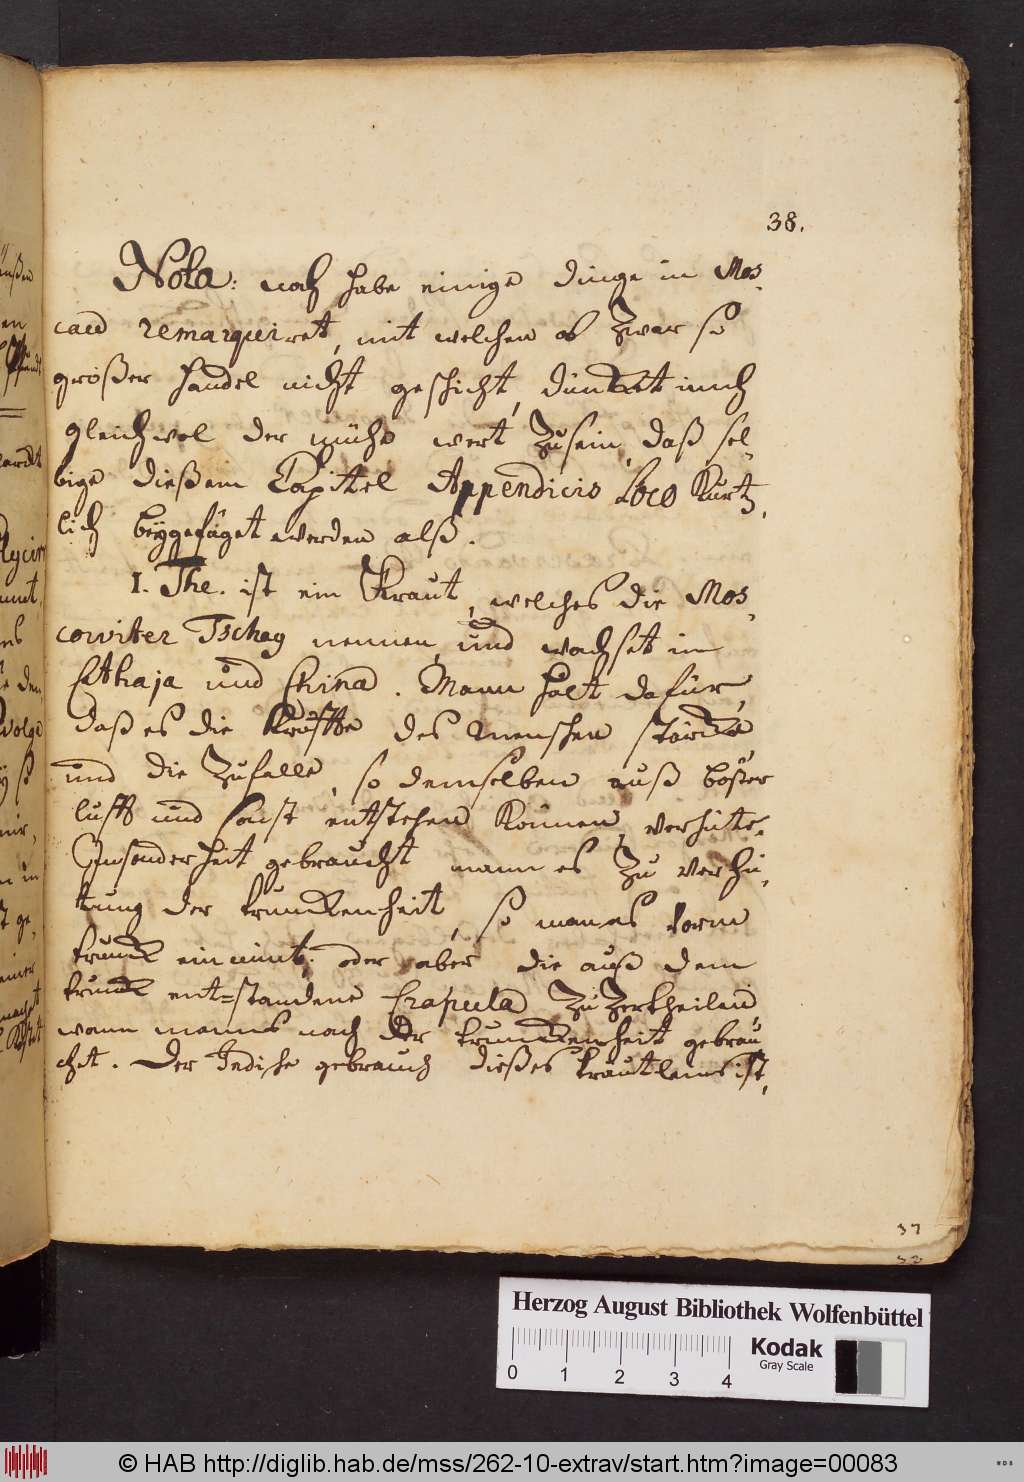 38.
Nota: noch habe einige dinge in Mos,
cau remarquiret, mit welchen es zwar so
großer handel nicht geschicht, düncket mich
gleichwol der mühe wert zu sein, daß sel,
bige dießem Capitel Appendicis Loco kurtz,
lich beygefüget werden alß.
1. The. ist ein Kraut, welches die Mos,
cowiter Tschay nennen, und wachset in
Cathaja und China. Mann halt dafür,
daß es die Kräffte des menschen stärcke,
und die Zufalle, so demselben auß böser
lufft und sonst entstehen können, verhüte.
Insonderheit gebraucht mann es zu verhü,
tung der trunckenheit, so man es vorm
trunck einnimt; oder aber die auß dem
trunck ent=standene Crapula zu zertheilen,
wann manns nach der trunckenheit gebrau
chet. Der Indische gebrauch dießes kräutleins ist,
37
Herzog August Bibliothek Wolfenbüttel
0 1 2 3 4
Kodak
Gray Scale
© HAB http://diglib.hab.de/mss/262-10-extrav/start.htm?image=00083